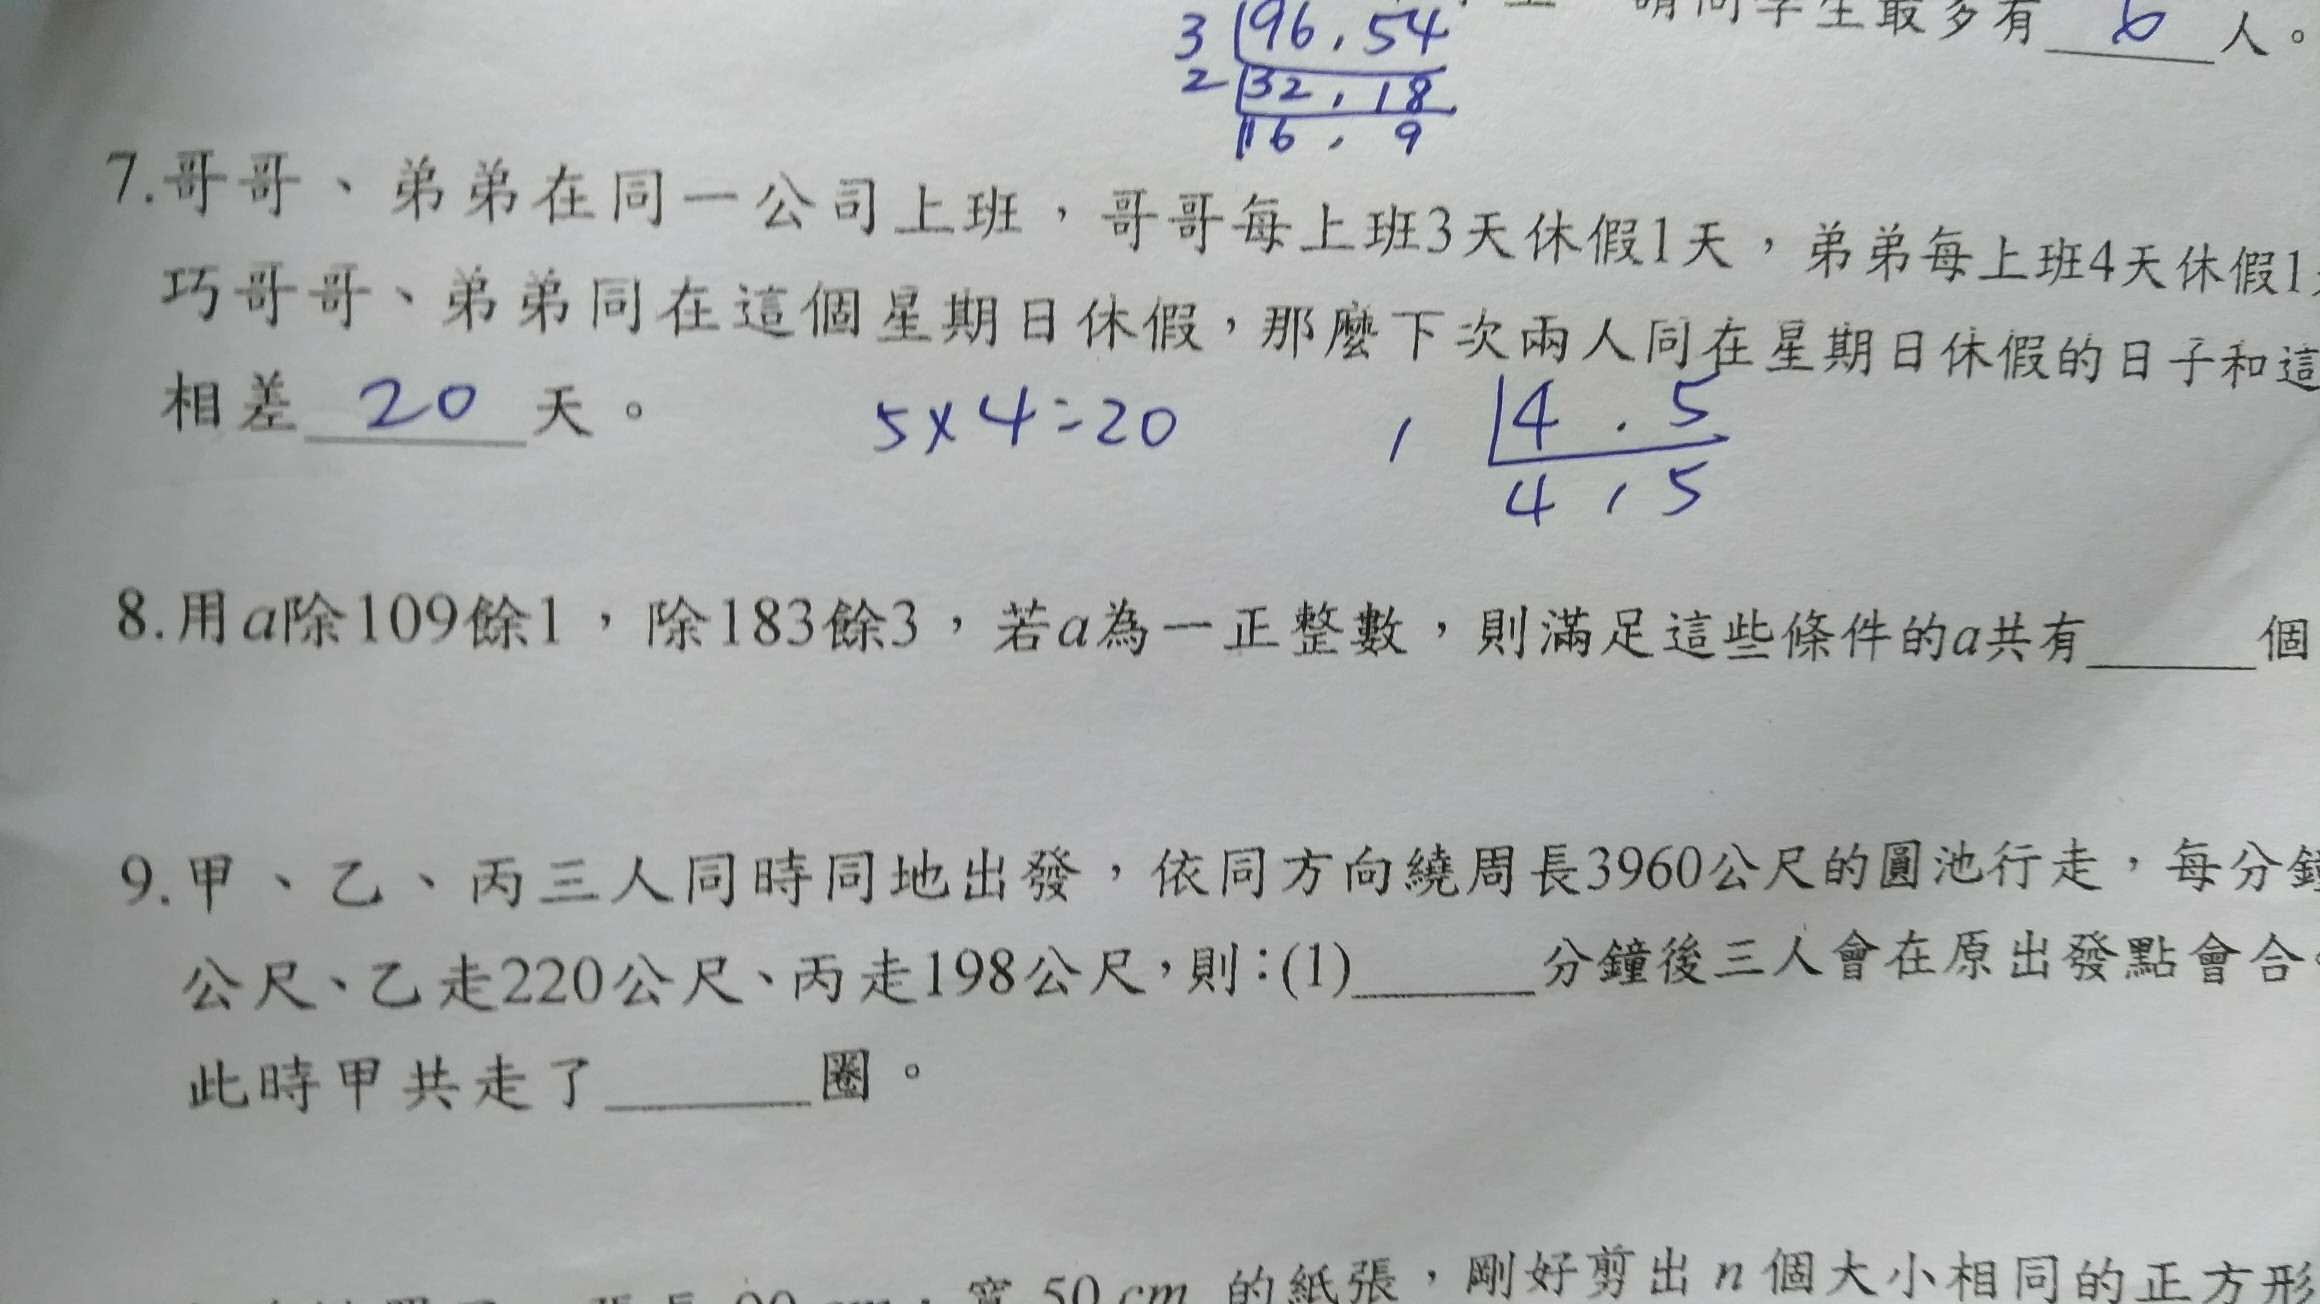 3 96,54 生最多有 6 人。
2 32,18
16,9
7.哥哥、弟弟在同一公司上班,哥哥每上班3天休假1天,弟弟每上班4天休假1
巧哥哥、弟弟同在這個星期日休假,那麼下次兩人同在星期日休假的日子和這
相差 20 天。 5×4=20 1 4.5
4,5
8.用a除109餘1,除183餘3,若a為一正整數,則滿足這些條件的a共有______個
9.甲、乙、丙三人同時同地出發,依同方向繞周長3960公尺的圓池行走,每分鐘
公尺、乙走220公尺、丙走198公尺,則:(1)______分鐘後三人會在原出發點會合。
此時甲共走了______圈。
50 cm 的紙張,剛好剪出 n 個大小相同的正方形